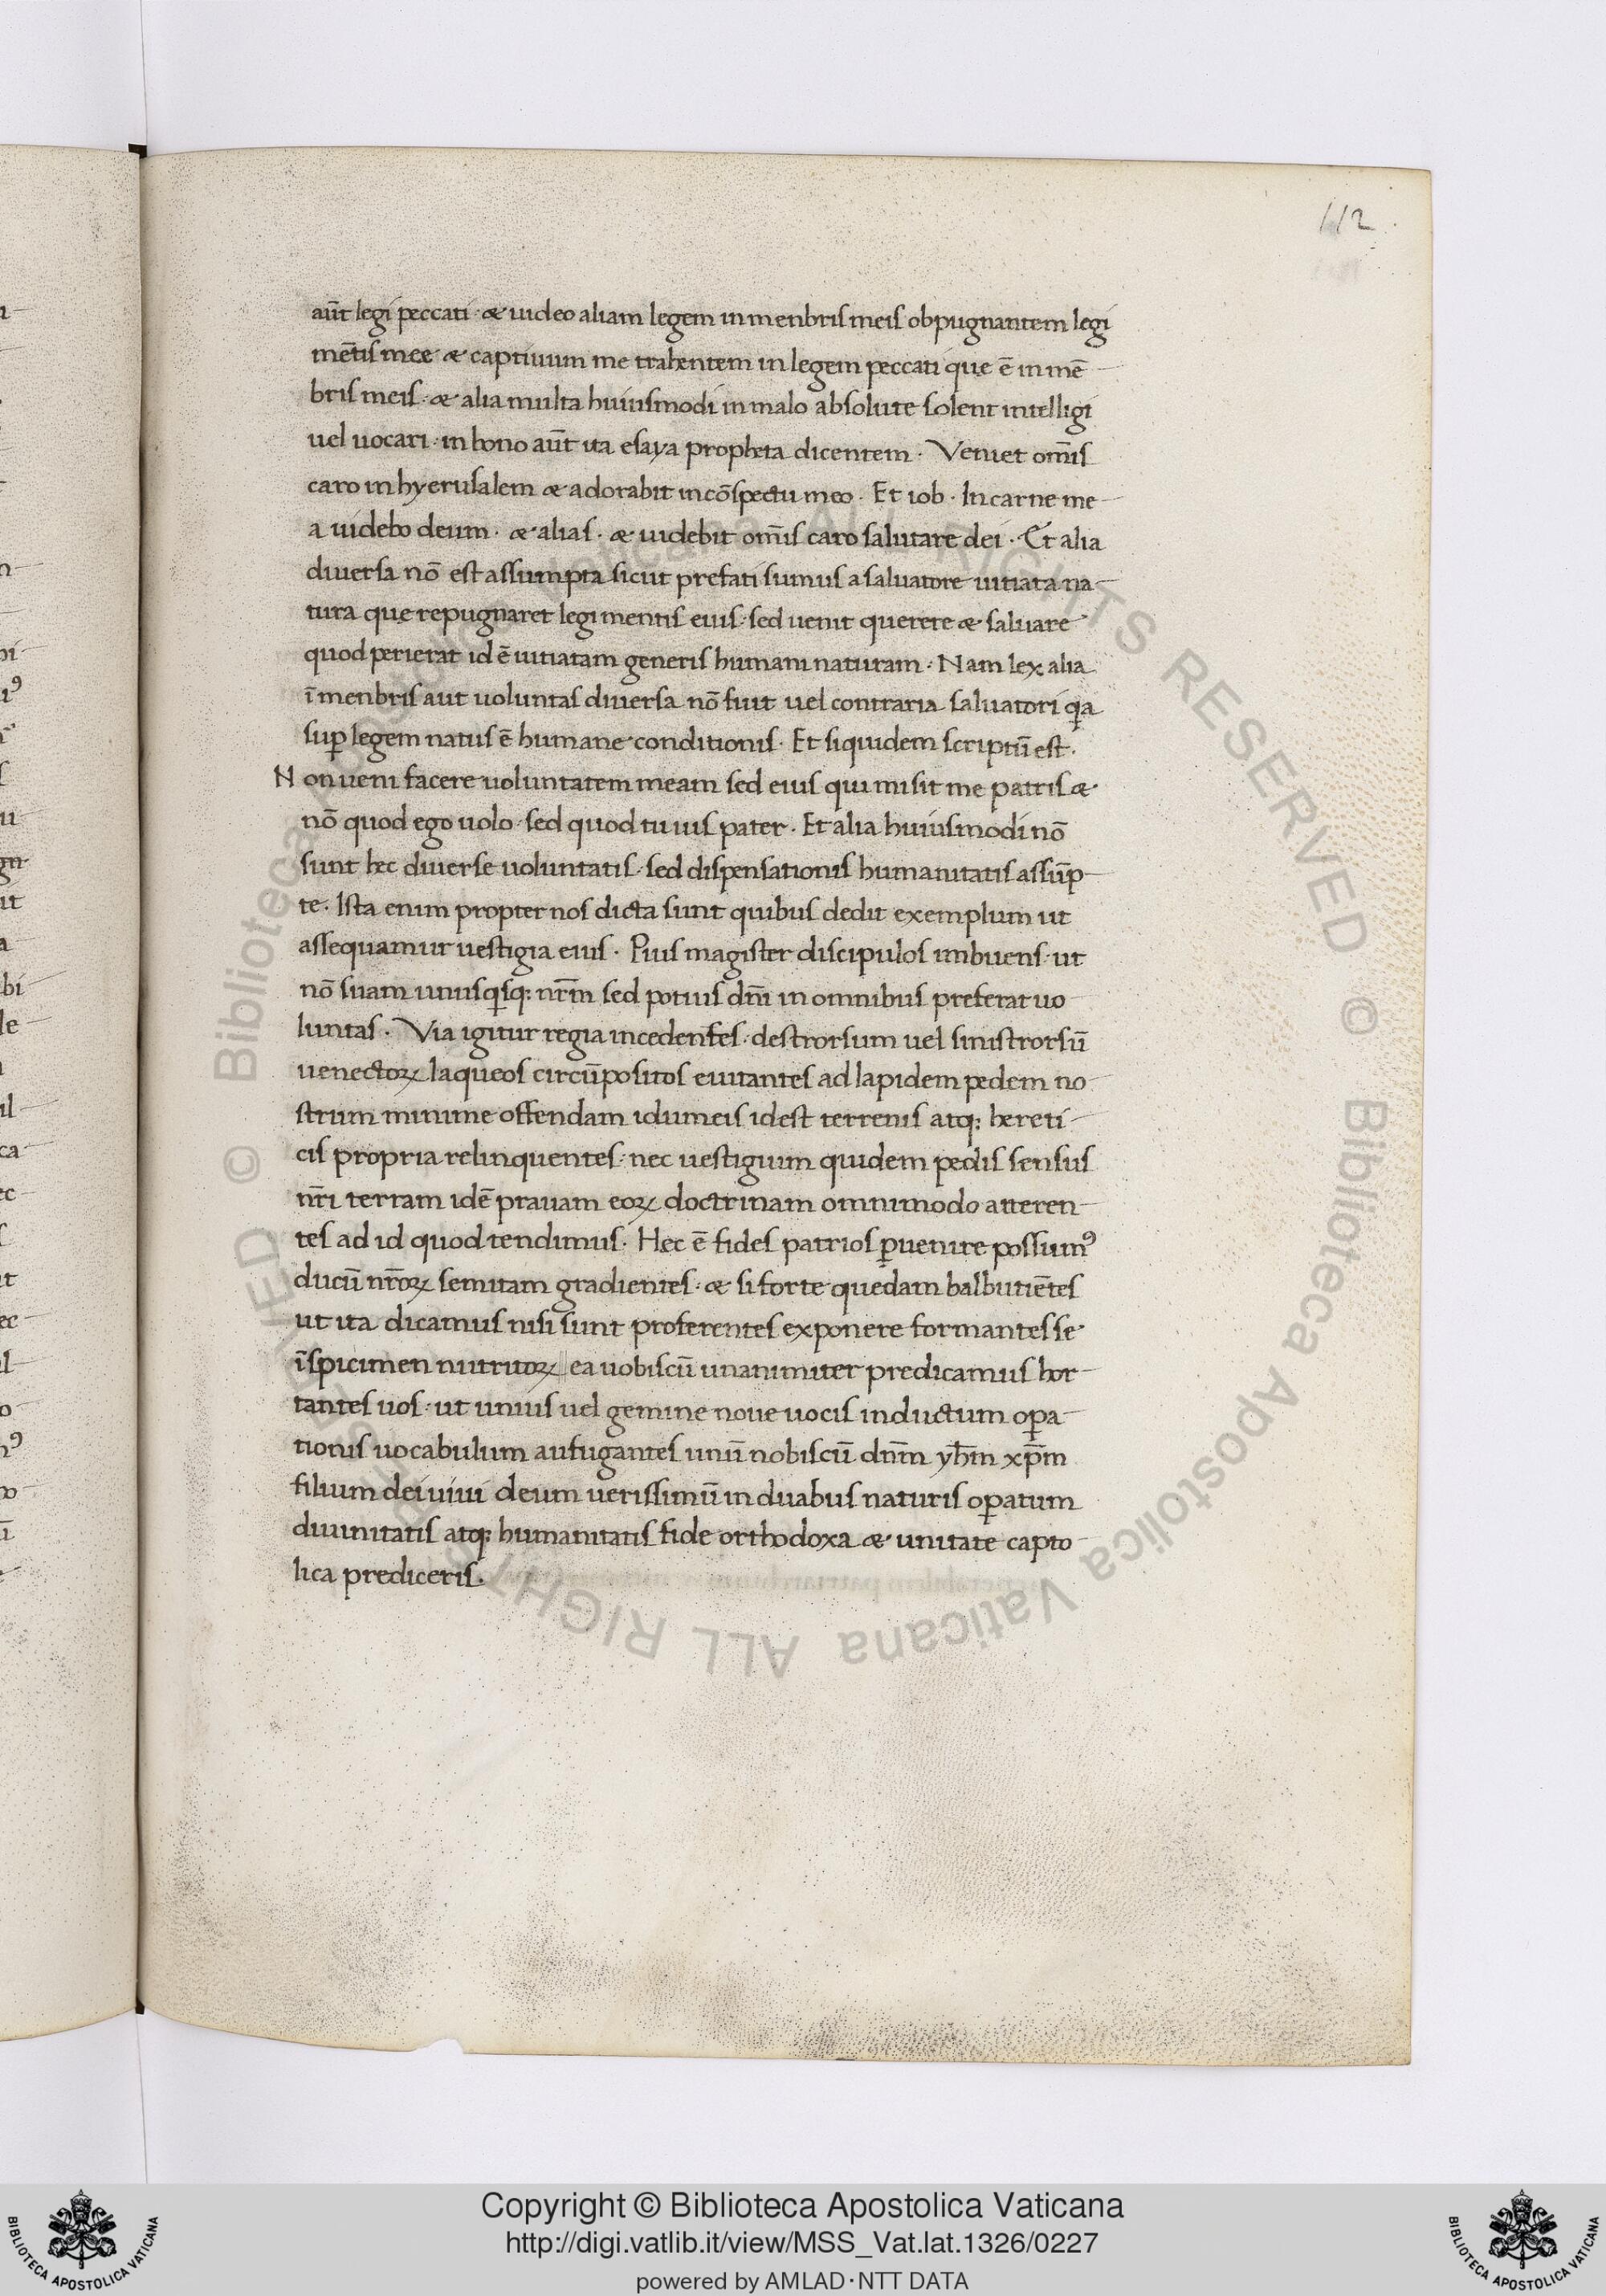 112
aūt legi peccati · & uideo aliam legem in menbris meis obpugnantem legi
mētis mee & captiuum me trahentem in legem peccati que ē in mē
bris meis · & alia multa huiusmodi in malo absolute solent intelligi
uel uocari · in bono aūt ita esaya propheta dicentem · Veniet om̄is
caro in hyerusalem & adorabit in cōspectu meo · Et iob · In carne me
a uidebo deum · & alias · & uidebit om̄is caro salutare dei · Et alia
diuersa nō est assumpta sicut prefati sumus a saluatore uitiata na
tura que repugnaret legi mentis eius · sed uenit querere & saluare
quod perierat id ē uitiatam generis humani naturam · Nam lex alia
ī menbris aut uoluntas diuersa nō fuit uel contraria saluatori qia
sup̱ legem natus ē humane conditionis · Et siquidem scriptū est ·
Non ueni facere uoluntatem meam sed eius qui misit me patris &
nō quod ego uolo · sed quod tu uis pater · Et alia huiusmodi nō
sunt hec diuerse uoluntatis · sed dispensationis humanitatis assūp
te · Ista enim propter nos dicta sunt quibus dedit exemplum ut
assequamur uestigia eius · Pius magister discipulos imbuens · ut
nō suam unusqisq; nr̄m sed potius dn̄i in omnibus preferat uo
luntas · Via igitur regia incedentes · destrorsum uel sinistrorsū
uenectoꝝ laqueos circūpositos euitantes ad lapidem pedem no
strum minime offendam idumeis id est terrenis atq; hereti
cis propria relinquentes · nec uestigium quidem pedis sensus
nr̄i terram id ē prauam eoꝝ doctrinam omnimodo atteren
tes ad id quod tendimus · Hec ē fides patrios ꝑuenire possum⁹
ducū nr̄oꝝ semitam gradientes · & si forte quedam balbutiētes
ut ita dicamus nisi sunt proferentes exponere formantes se
īspicimen nutritoꝝ ea uobiscū unanimiter predicamus hor
tantes uos · ut unius uel gemine noue uocis inductum oꝑa
tionis uocabulum aufugantes unū nobiscū dn̄m yh̄m xp̄m
filium dei uiui deum uerissimū in duabus naturis oꝑatum
diuinitatis atq; humanitatis fide orthodoxa & unitate capto
lica prediceris ·
Copyright © Biblioteca Apostolica Vaticana
http://digi.vatlib.it/view/MSS_Vat.lat.1326/0227
powered by AMLAD·NTT DATA
BIBLIOTECA APOSTOLICA VATICANA
BIBLIOTECA APOSTOLICA VATICANA
© Biblioteca Apostolica Vaticana ALL RIGHTS RESERVED © Biblioteca Apostolica Vaticana ALL RIGHTS RESERVED